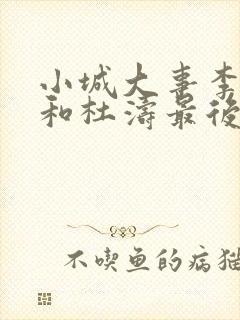 小城大喜李
和杜涛最後
不喫鱼的病猫